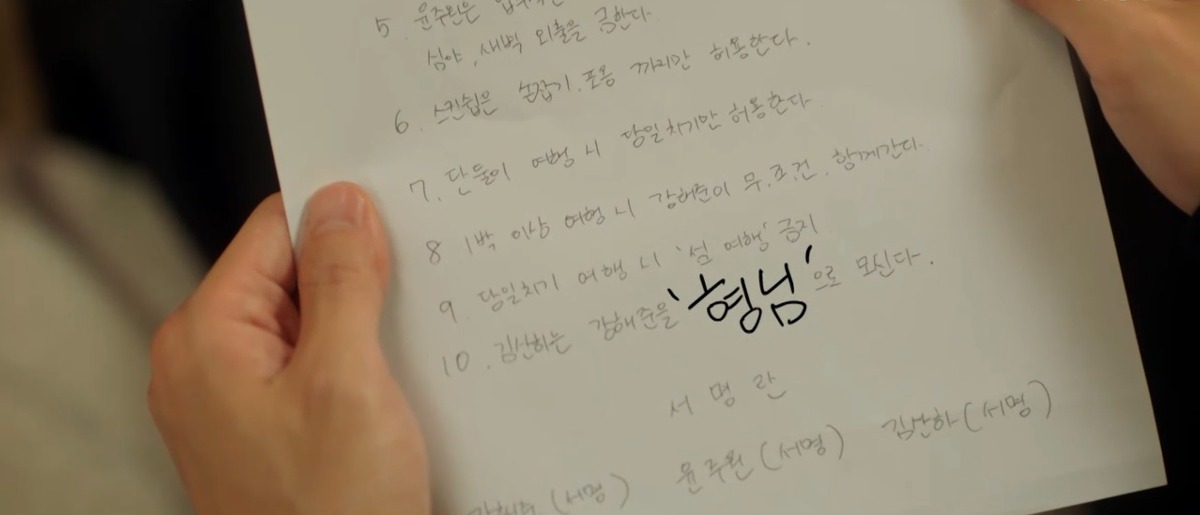 5. 윤주원은
심야, 새벽 외출을 금한다.
6. 스킨쉽은 손잡기, 포옹 까지만 허용한다.
7. 단둘이 여행 시 당일치기만 허용한다.
8 1박 이상 여행 시 강해준이 무.조.건. 함께간다.
9 당일치기 여행 시 '섬 여행' 금지
10. 김산하는 강해준을 '형님'으로 모신다.
서 명 란
(서명) 윤주원(서명) 김산하(서명)